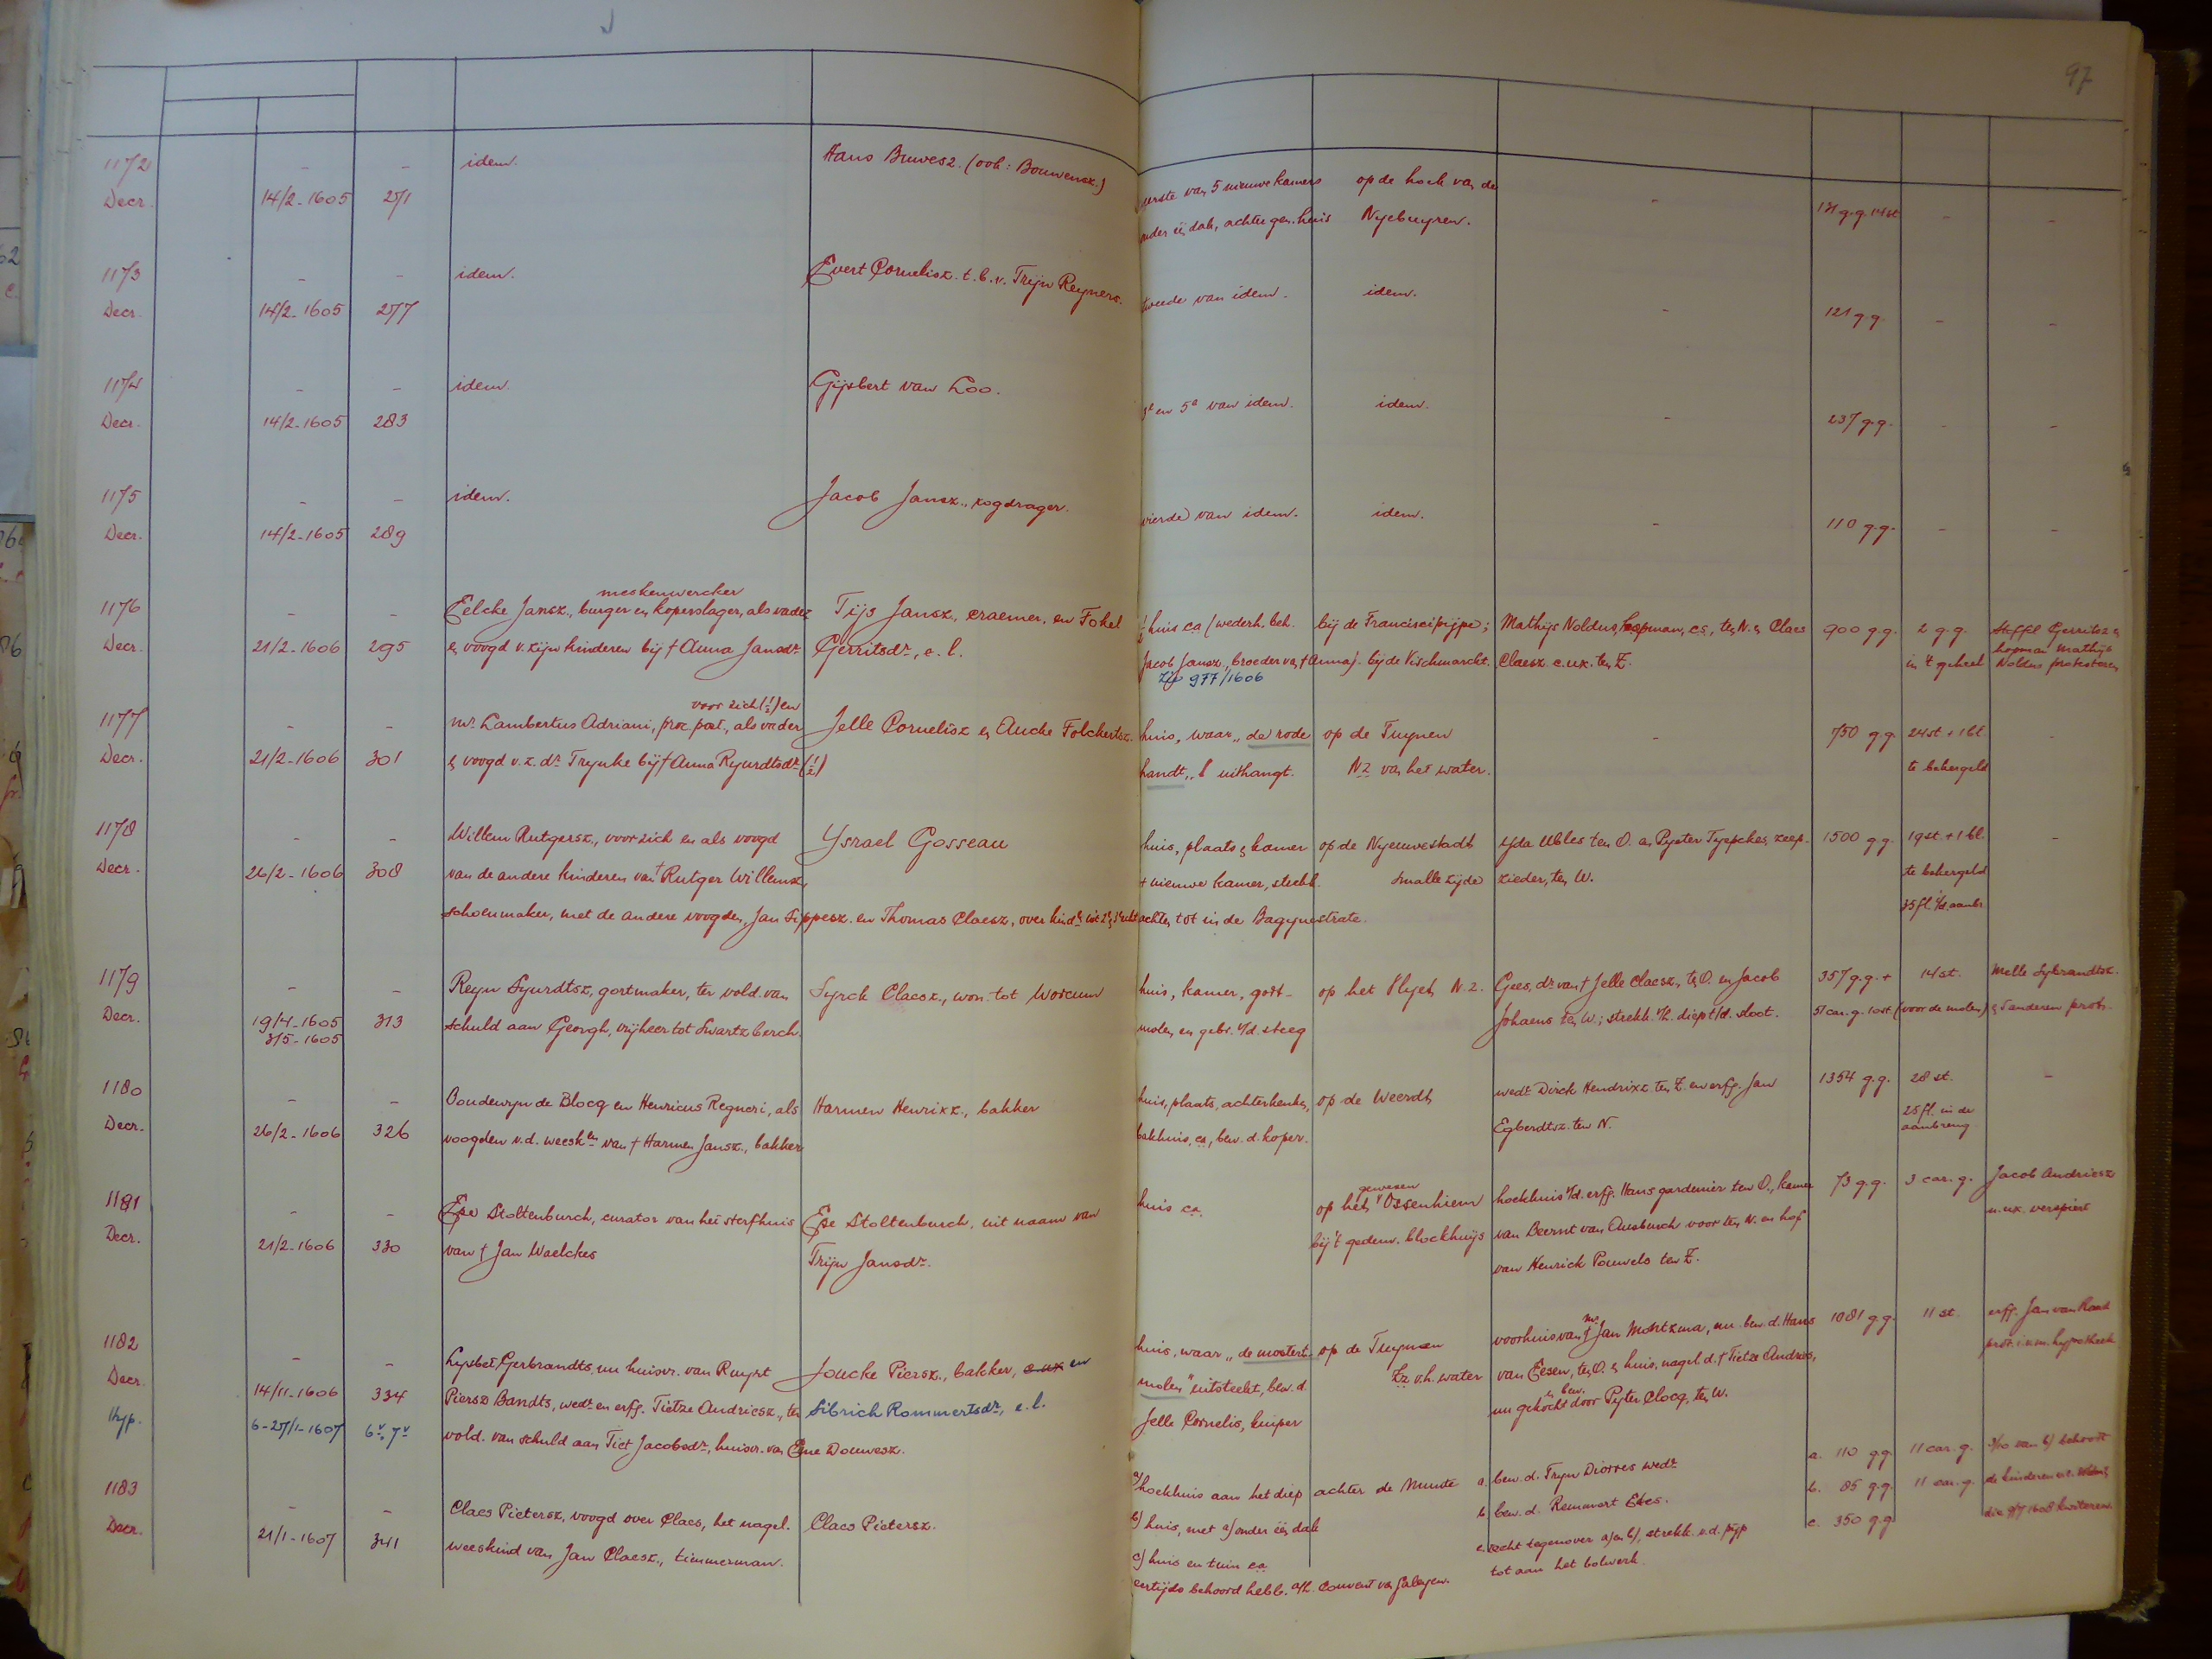 97
1172 - - idem. Hans Buwesz. (ook: Bouwensz.) eerste van 5 nieuwe kamers op de hoek van de
Decr. 14/2-1605 271 onder één dak, achter gen. huis Nyebuyren. - 121 g.g. 14 st. - -
1173 - - idem. Evert Cornelisz. t.b.v. Trijn Reyners. tweede van idem. idem.
Decr. 14/2-1605 277 - 121 g.g. - -
1174 - - idem. Gijsbert van Loo. 3e en 5e van idem. idem.
Decr. 14/2-1605 283 - 237 g.g. - -
1175 - - idem. Jacob Jansz., zogdrager. vierde van idem. idem.
Decr. 14/2-1605 289 - 110 g.g. - -
meskenwercker
1176 - - Eelcke Jansz., burger en koperslager, als vader Tijs Jansz., craemer, en Fokel ½ huis ca (wederh. beh. bij de Franciscipijpe; Mathijs Noldus, hopman, c.s., ten N. en Claes 900 g.g. 2 g.g. Steffel Gerritsz en
Decr. 21/2-1606 295 en voogd v. zijn kinderen bij † Anna Jansdr. Gerritsdr., e.l. Jacob Jansz., broeder van † Anna). bij de Vischmarckt. Claesz. c.ux. ten Z. in 't geheel hopman Mathijs Noldus protesteren
Zie 977/1606
voor zich (½) en
1177 - - Mr. Lambertus Adriani, proc. post., als vader Jelle Cornelisz en Aucke Folckertsz. huis, waar "de rode op de Tuynen - 750 g.g. 24 st + 1 bl. -
Decr. 21/2-1606 301 en voogd v.z. dr. Trynke bij † Anna Ryurdtsdr. (½) handt" uithangt. N.Z. van het water. te bekergeld
1178 - - Willem Rutgersz., voor zich en als voogd Ysrael Gosseau huis, plaats en kamer op de Nyeuwestadt Yda Ubles ten O. en Pyeter Typckes, zeep- 1500 g.g. 19 st. + 1 bl. -
Decr. 26/2-1606 308 van de andere kinderen van † Rutger Willemsz., + nieuwe kamer, strekk. Smalle zijde zieder, ten W. te bekergeld
schoenmaker, met de andere voogden, Jan Sippesz. en Thomas Claesz., over kindn. achter tot in de Bagynestrate. 35 fl. i/d. aanbr.
1179 - - Reyn Syurdtsz., gortmaker, ter vold. van Syrck Claesz., won. tot Worcum huis, kamer, gort- op het Vlyet, N.Z. Gees, dr. van † Jelle Claesz., ten O. en Jacob 357 g.g. + 14 st. Melle Sybrandtsz.
Decr. 19/4-1605 313 schuld aan Georgh, vrijheer tot Swartzberch. molen en gebr. v/d. steeg Johaens ten W.; strekk. v/h. diep t/d. sloot. 51 car. g. 10 st (voor de molen) en 5 anderen prot.
3/5-1605
1180 - - Boudewyn de Blocq en Henricus Regneri, als Harmen Henrixz., bakker huis, plaats, achterkeuken, op de Weerdt wedr. Dirck Hendrixz ten Z. en erfg. Jan 1354 g.g. 28 st. -
Decr. 26/2-1606 326 voogden v.d. weesken van † Harmen Jansz., bakker bakhuis, ca, bew. d. koper. Egberdtsz. ten N. 25 fl. in de aanbreng
gewesen
1181 - - Epe Stoltenburch, curator van het sterfhuis Epe Stoltenburch, uit naam van huis ca. op het Ossenhiem hoekhuis v/d. erfg. Hans gardenier ten O., kamer 73 g.g. 3 car. g. Jacob Andriesz
Decr. 21/2-1606 330 van † Jan Waelckes Trijn Jansdr. bij 't gedem. blockhuys van Beernt van Ausburch voor ten N. en hof n. ux. verspiert
van Henrick Pouwels ten Z.
1182 - - Lysbet Gerbrandts, nu huisvr. van Ruyrt Joucke Piersz., bakker, en huis, waar "de mostert- op de Tuynen voorhuis van † Mr. Jan Montzma, nu bew. d. Hans 1081 g.g. 11 st. erfg. Jan van Raad
Decr. 14/11-1606 334 Piersz Bandts, wedr. en erfg. Tietze Andriesz., ter Sibrich Rommertsdr., e.l. molen" uitsteekt, bew. d. Z.Z. v.h. water van Eesen, ten O. en huis, nagel. d. † Tietze Andries, prot. i.v.m. hypotheek
Hyp. 6-27/1-1607 6v, 7v vold. van schuld aan Tiet Jacobsdr., huisvr. van Eme Douwesz. Jelle Cornelis, kuiper nu gekocht en bew. door Pyter Clocq, ten W.
1183 - - Claes Pietersz., voogd over Claes, het nagel. Claes Pietersz. a) hoekhuis aan het diep achter de Munte a. bew. d. Tryn Diorres wedr. a. 110 g.g. 11 car. g. 3/10 van b) behoort
Decr. 21/1-1607 341 weeskind van Jan Claesz., timmerman. b) huis, met a) onder één dak b. bew. d. Remmert Ebes. b. 85 g.g. 11 car. g. de kinderen
c) huis en tuin ca c. recht tegenover a) en b), strekk. v.d. pijp c. 350 g.g. die 9/7 1608 kwiteren.
eertijds behoord hebb. a/h. Convent van Galeyen. tot aan het bolwerk.